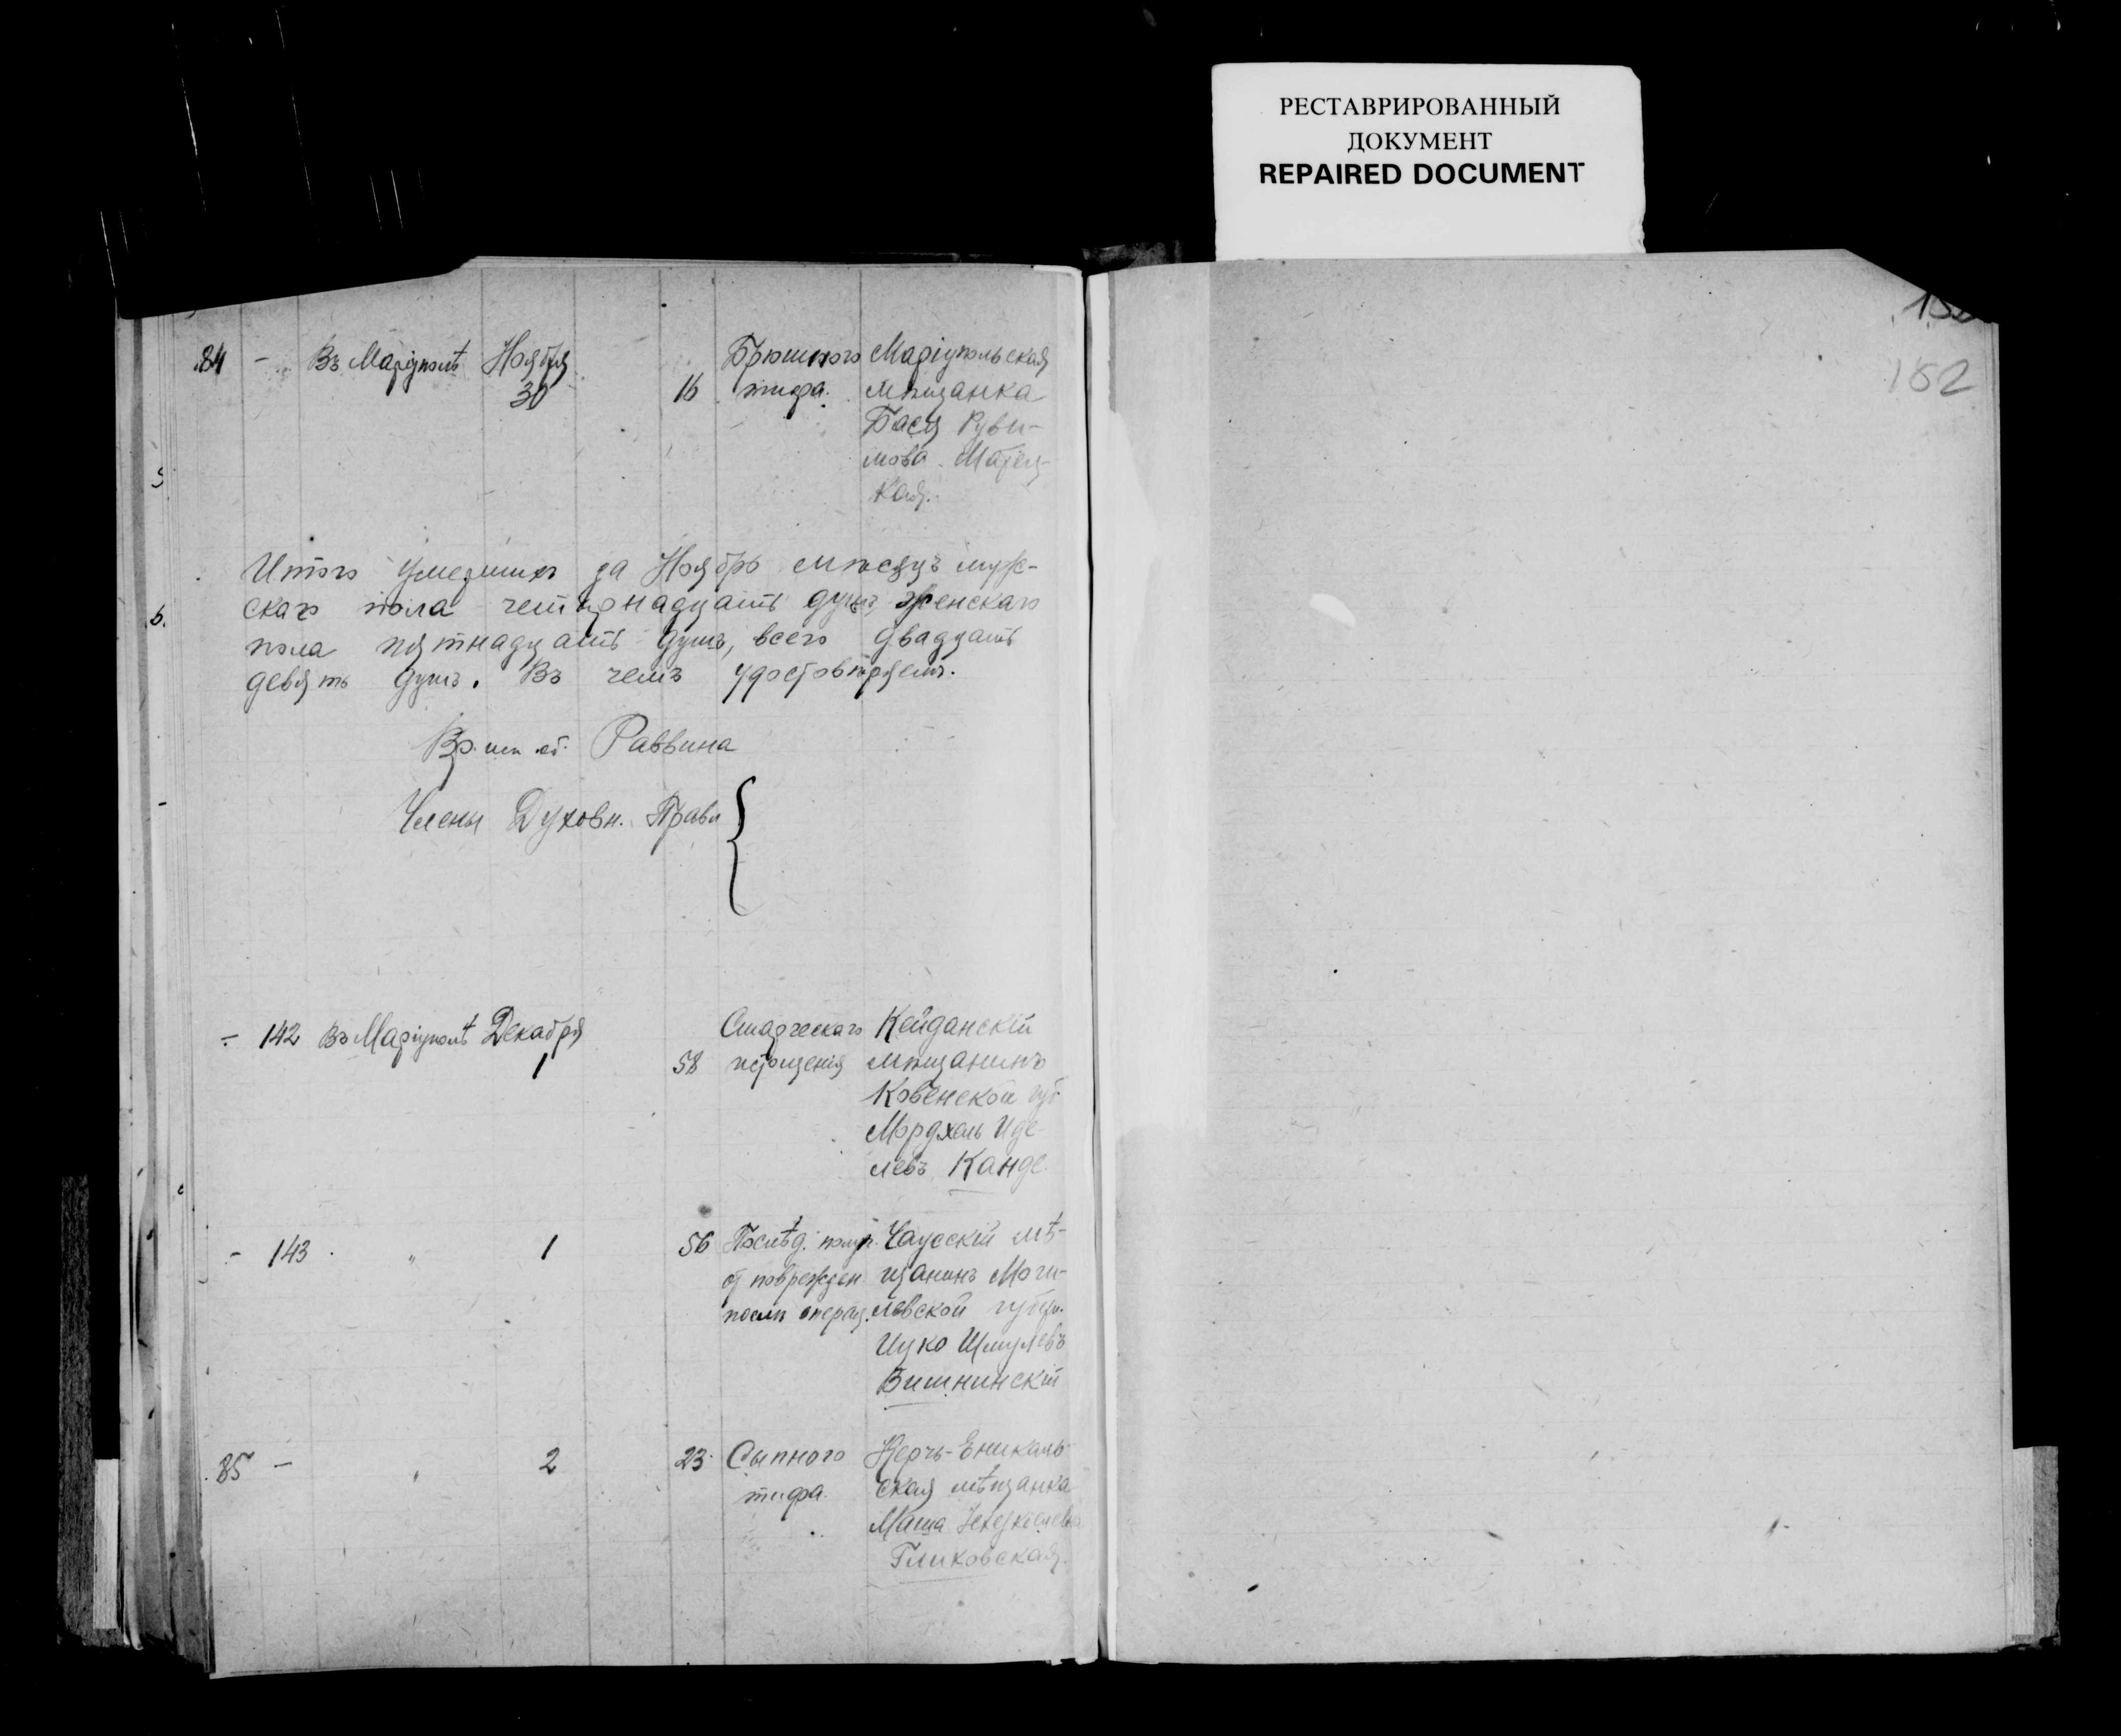 РЕСТАВРИРОВАННЫЙ
ДОКУМЕНТ
REPAIRED DOCUMENT
152
84 - Въ Маріуполѣ Ноября 30 16 Брюшного тифа. Маріупольская
мѣщанка
Бася Руви-
мова
кая.
Итого умершихъ за Ноябрь мѣсяцъ муж-
скаго пола четырнадцать душъ, женскаго
пола пятнадцать душъ, всего двадцать
девять душъ. Въ чемъ удостовѣряемъ.
Вр. исп. об. Раввина
Члены Духовн. Правл
- 142 Въ Маріуполѣ Декабря 1 58 Старческаго истощенія Кейданскій
мѣщанинъ
Ковенской губ
Мордхель Иде-
левъ Канде
- 143 " 1 56 Послѣд. получ. от поврежден. послѣ операц. Чаусскій мѣ-
щанинъ Моги-
левской губерн.
Ицко Шмулевъ
Вишнинскій
85 - " 2 23 Сыпного тифа. Керчь-Еникаль-
ская мѣщанка
Маша Хехескелевна
Гликовская.